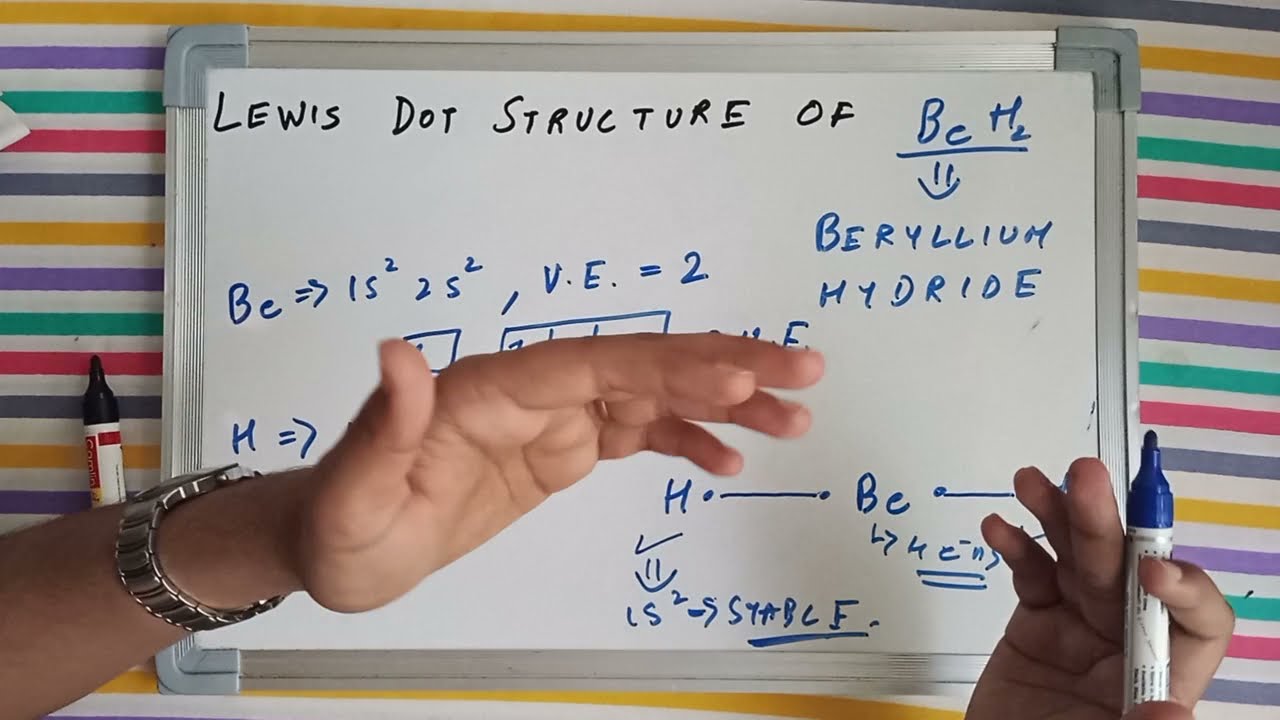 LEWIS DOT STRUCTURE OF BeH₂
⇓
BERYLLIUM
HYDRIDE
Be ⇒ 1s² 2s² , V.E. = 2
H ⇒
H•——• Be •——
↳ 4 e⁻ns
✓
⇓
1s² → STABLE.